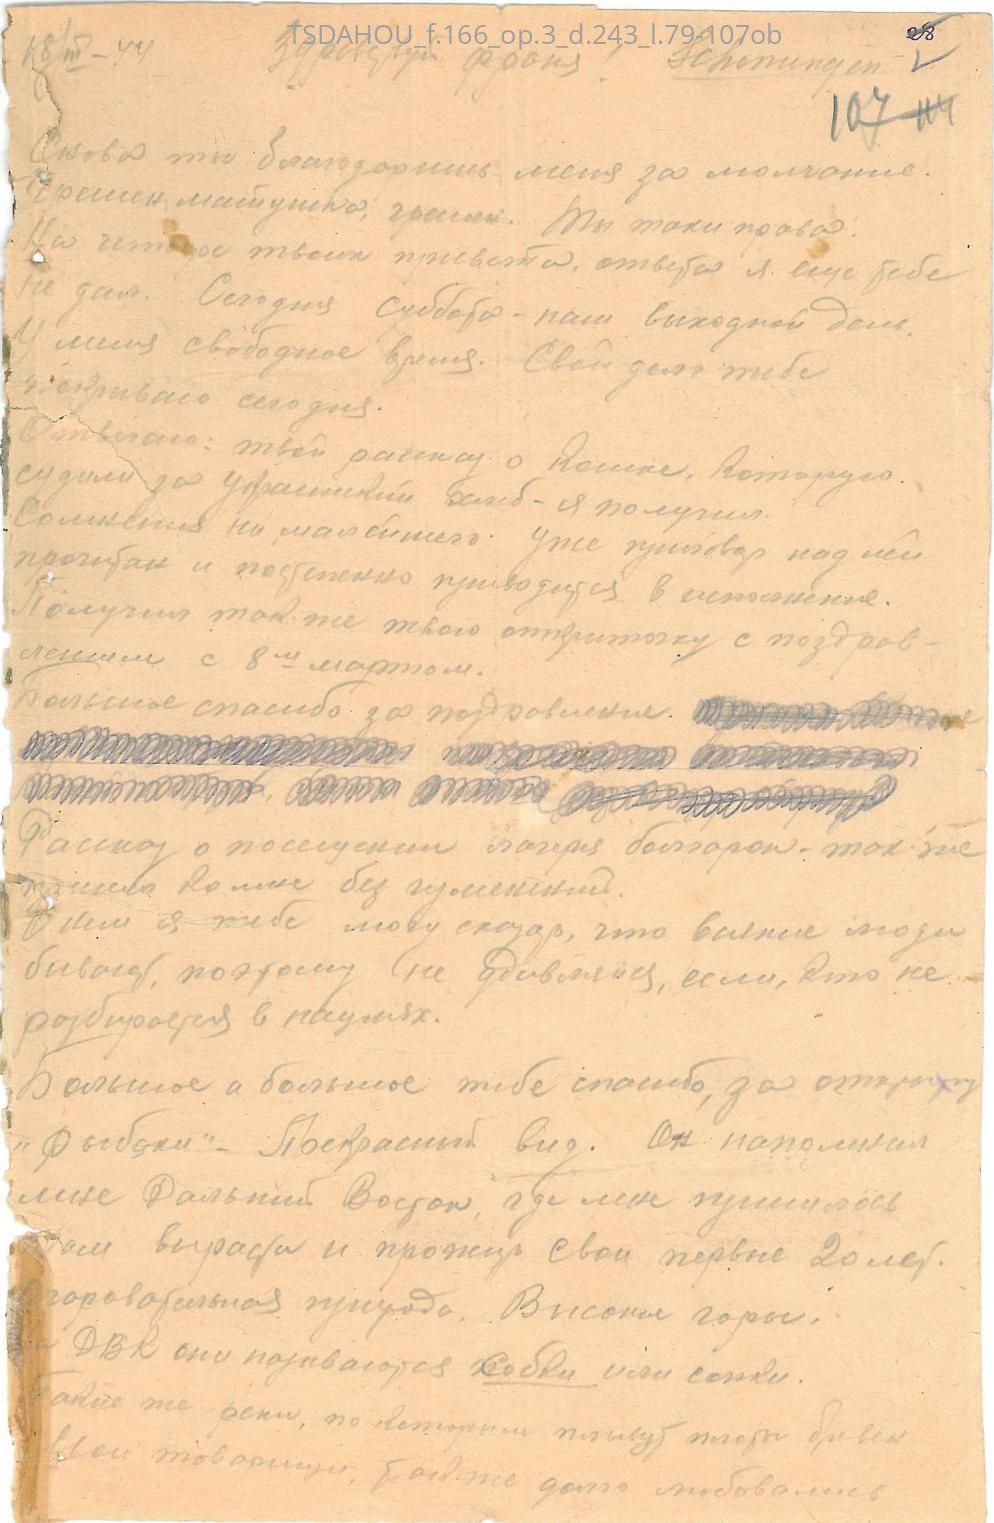 TSDAHOU_f.166_op.3_d.243_l.79-107ob
28
18/III-44 Здравствуй Фроня! Schöningen
107
Снова ты благодаришь меня за молчание.
Грешен, матушка, грешен. Ты таки права.
На четыре твоих привета, ответа я еще тебе
не дал. Сегодня суббота - наш выходной день.
У меня свободное время. Свой долг тебе
покриваю сегодня.
Отвечаю: твой рассказ о Кошке, которую
судили за украинский хлеб - я получил.
Сомнения ни малейшего. Уже приговор над ней
прочитан и постепенно приводится в исполнение.
Получил так-же твою открыточку с поздрав-
лением с 8м мартом.
Большое спасибо за поздравление.
Рассказ о посещении лагеря болгарок - так-же
пришел ко мне без изменений.
О нем я тебе могу сказать, что всякие люди
бывают, поэтому не удивляйся, если, кто не
разбирается в нациях.
Большое и большое тебе спасибо, за открытку
"Рыбаки" - Прекрасный вид. Он напомнил
мне Дальний Восток, где мне пришлось
там вырасти и прожить свои первые 20 лет.
природа. Высокие горы.
ДВК они называются сопки или сопки.
Такие же реки, по которым плывут плоты бревен
Мои товарищи, так-же долго любовались